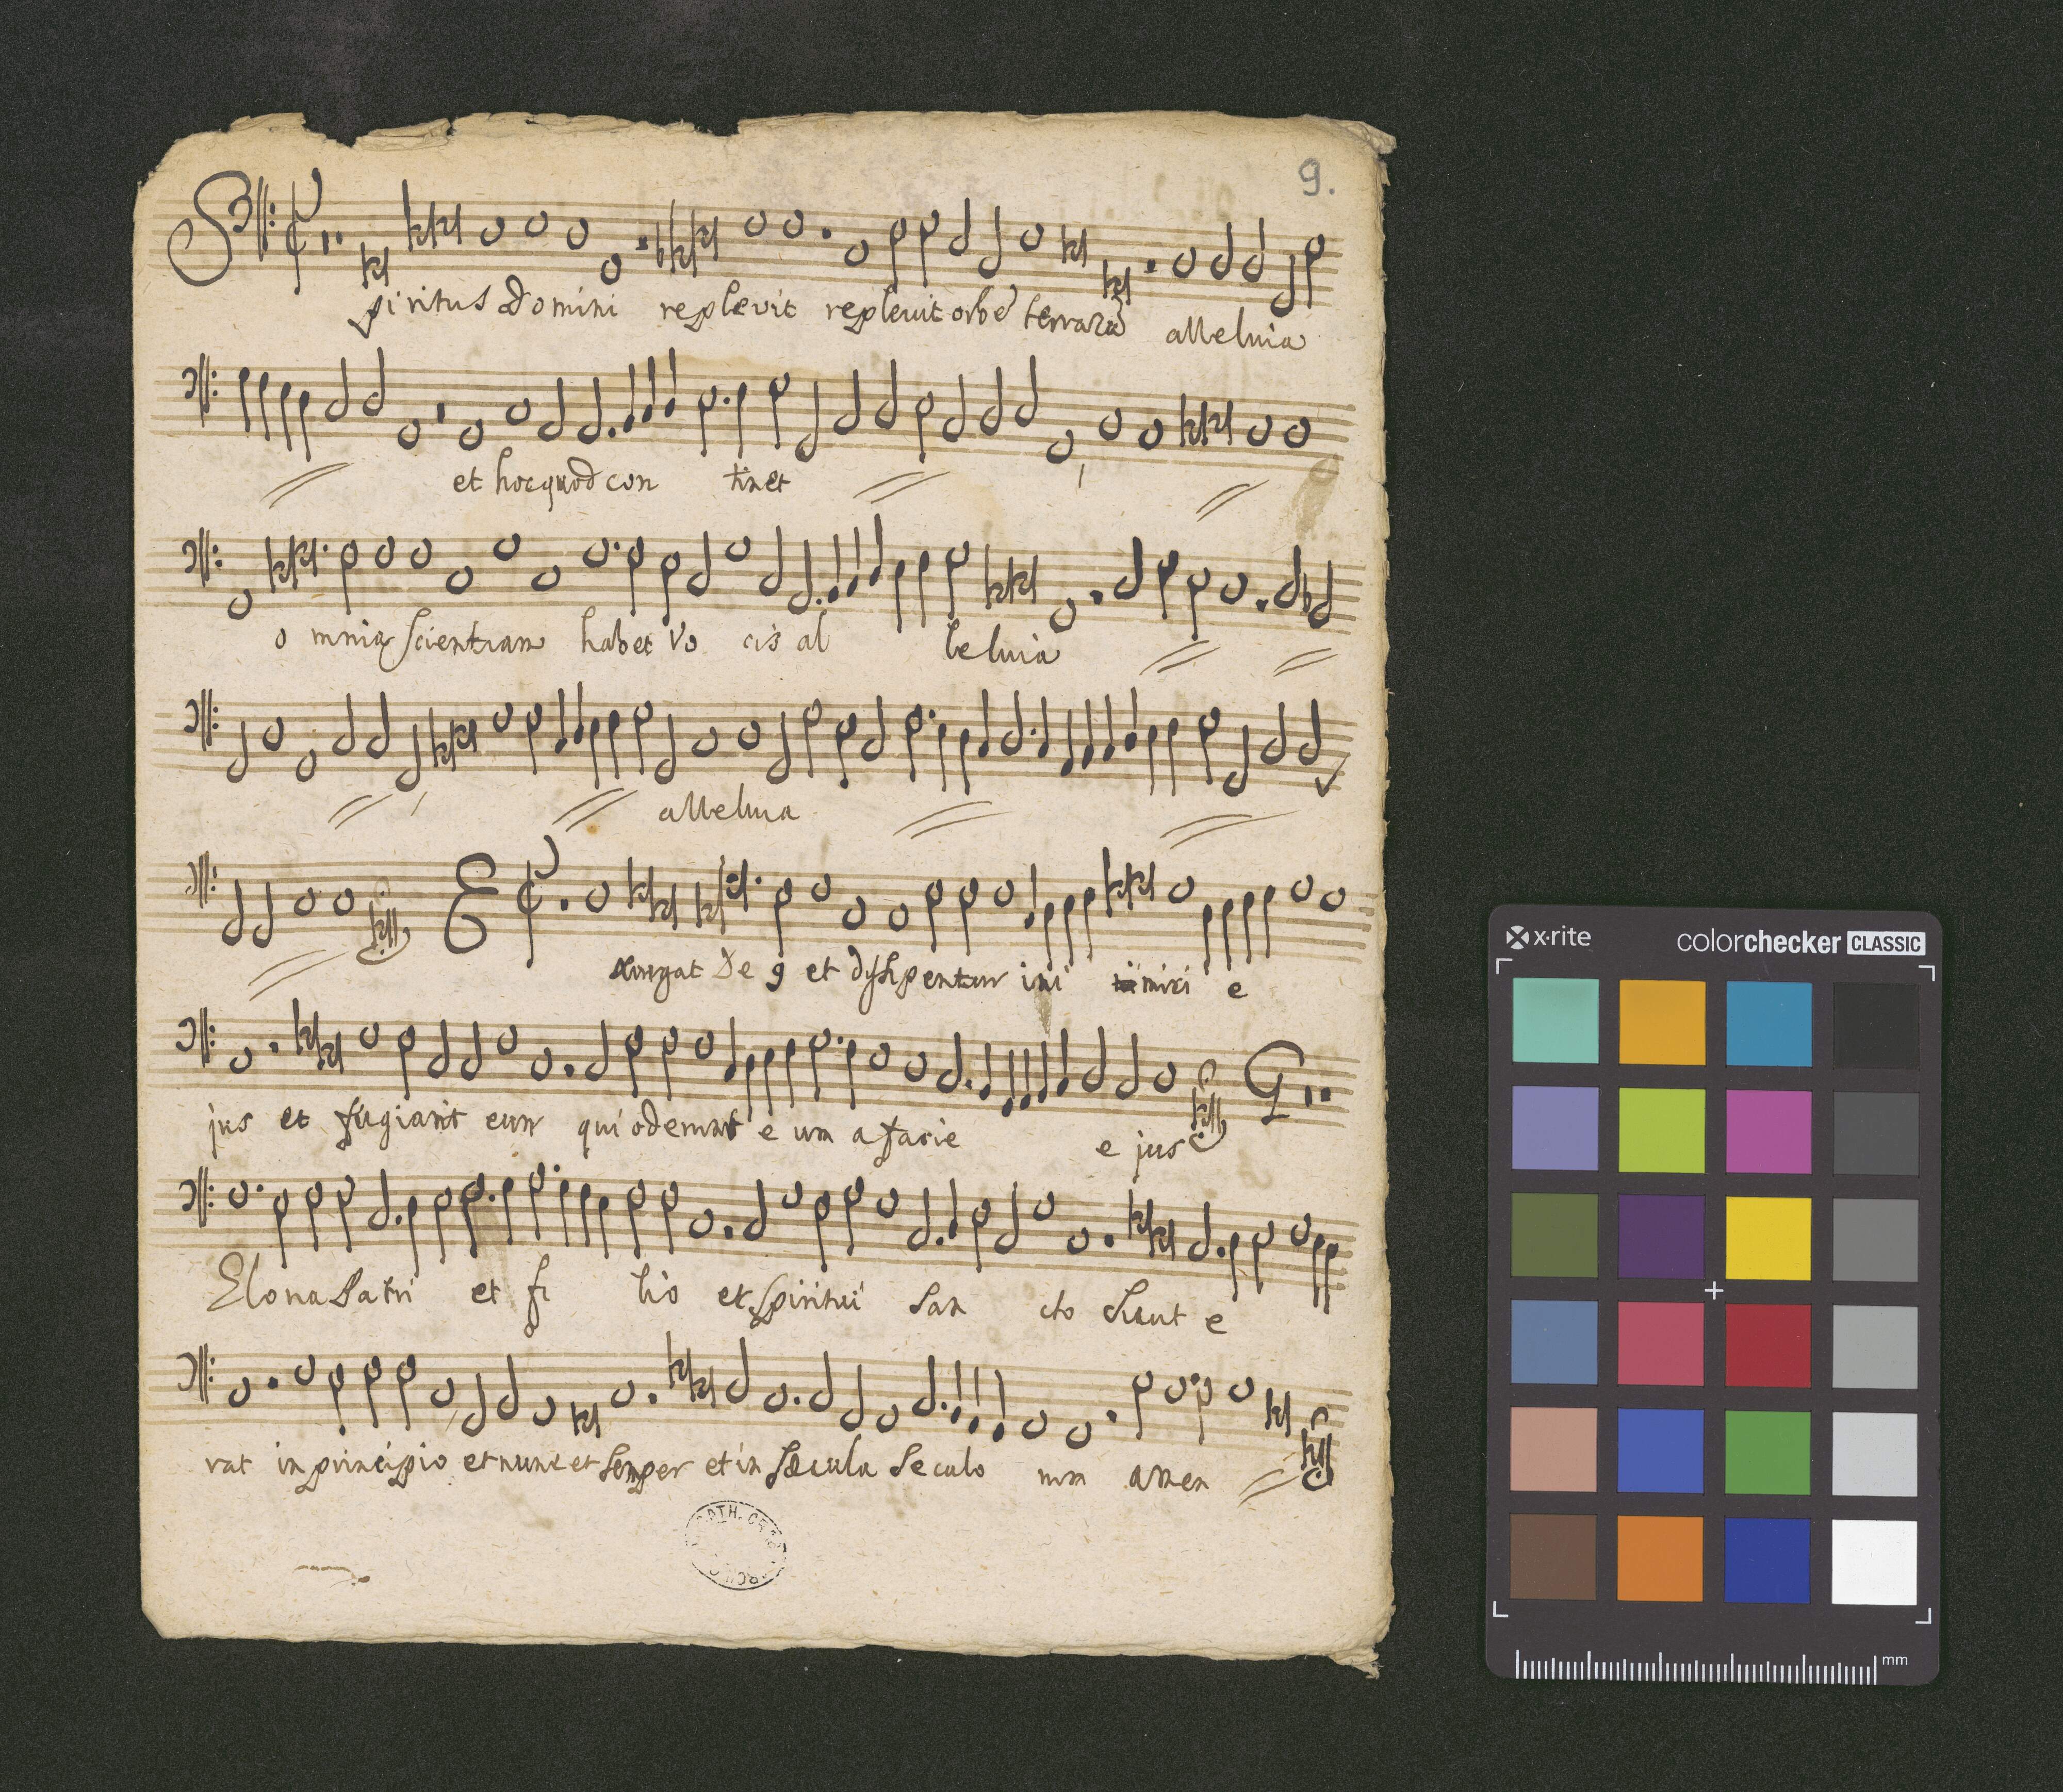 9.
Spiritus Domini replevit replevit orbē terrarū alleluia
et hoc quod con tinet
o mnia scientiam habet vo cis al leluia
alleluia
Exurgat De9 et dyssipentur ini mici e
jus et fugiant eum qui oderunt e um a facie e jus
G
Gloria Patri et fi lio et spiritui San cto Sicut e
rat in principio et nunc et semper et in sæcula seculo rum amen
x·rite colorchecker CLASSIC
mm